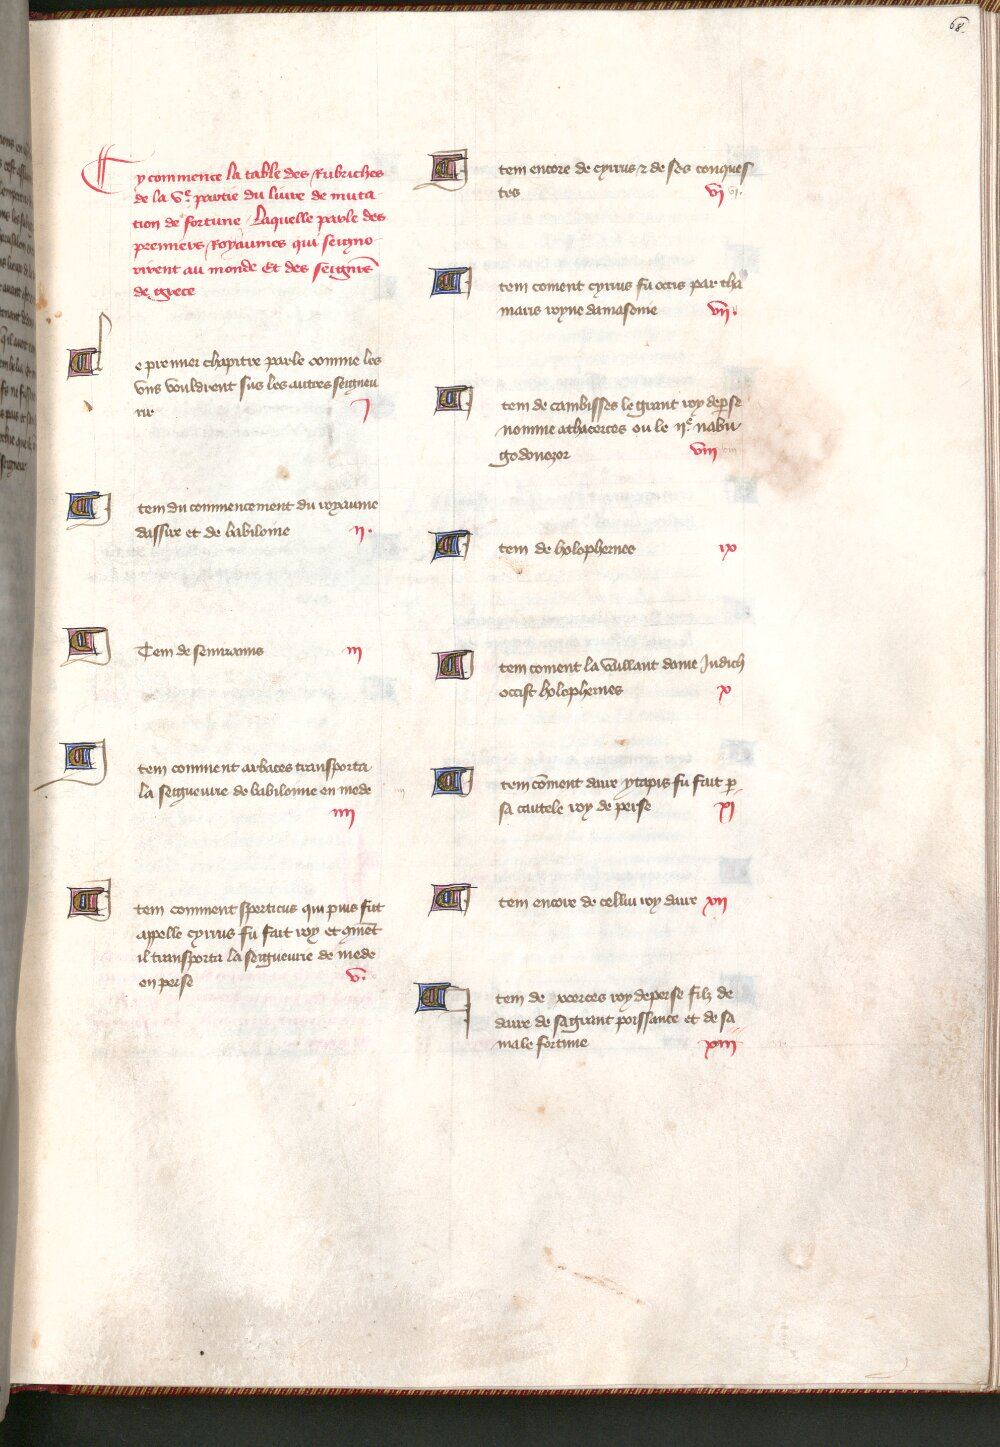 68
Cy commence la table des Rubriches
de la Ve partie du livre de muta
cion de fortune Laquelle parle des
premiers Royaumes qui seigno
rirent au monde Et des seigneurs
de grece
Le premier chapitre parle comme les
uns vouldrent sus les autres seigneu
rir j
Item du commencement du royaume
dassire et de babiloine ij.
Item de semiramis iij
Item comment arbaces transporta
la seigneurie de babiloinne en mede
iiij
Item comment sperticus qui puis fut
appelle cyrus fu fait roy et comment
il transporta la seigneurie de mede
en perse v.
Item encore de cyrrus et de ses conques
tes vj vj.
Item coment cyrus fu occis par tha
maris royne damasonie vij.
Item de cambisses le grant roy de perse
nomme athacerces ou le ije nabu
godonozor viij
Item de holophernes ix
Item coment la vaillant dame Judich
occist holophernes x
Item coment daire ytapis fu fait par
sa cautele roy de perse xj
Item encore de cellui roy daire xij
Item de xerces roy de perse filz de
daire de sa grant poissance et de sa
male fortune xiij